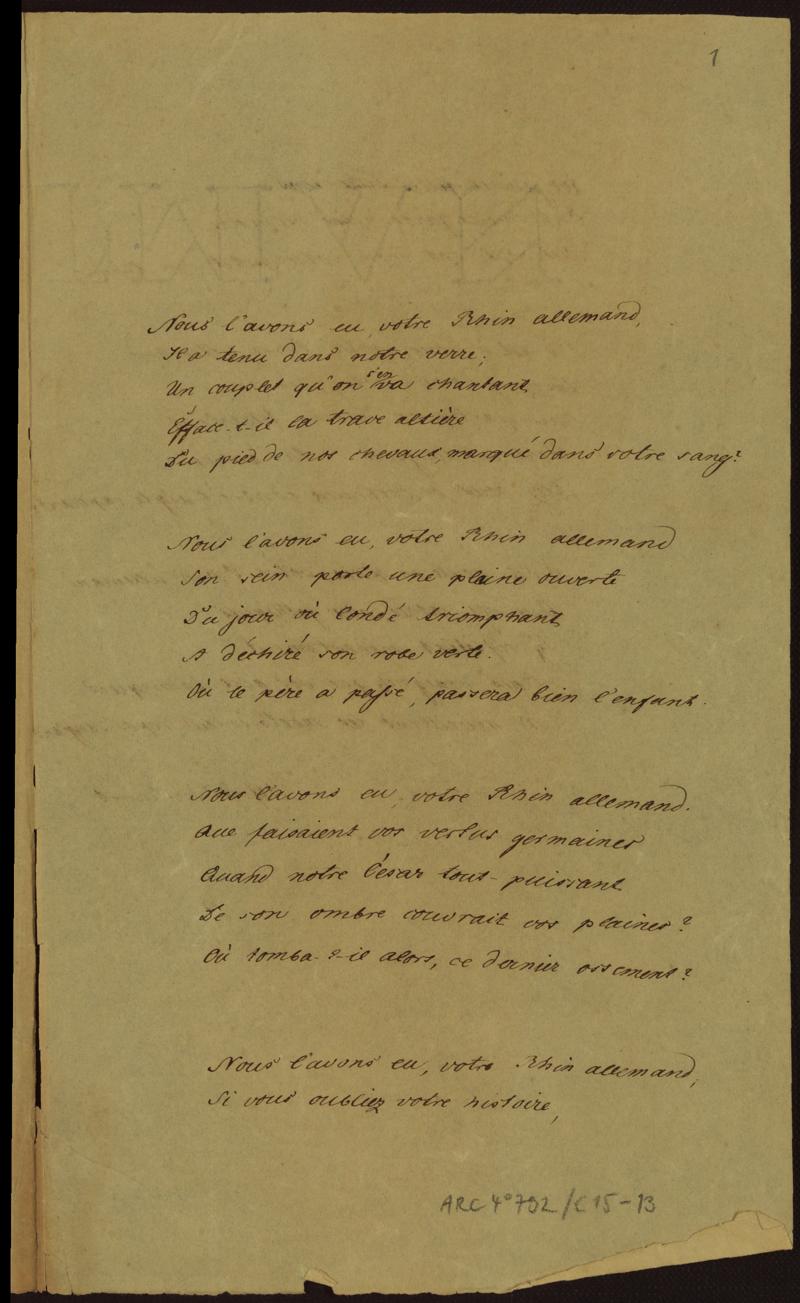 1
Nous l'avons eu, votre Rhin allemand,
Il a tenu dans notre verre;
Un couplet qu'on s'en va chantant
Efface-t-il la trace altière
Du pied de nos chevaux, marqué dans votre sang?
Nous l'avons eu, votre Rhin allemand
Son sein porte une plaine ouverte
Du jour où Condé triomphant
A déchiré son robe verte.
Où le père a passé, passera bien l'enfant.
Nous l'avons eu, votre Rhin allemand.
Que faisaient vos vertus germaines
Quand notre César tout-puissant
De son ombre couvrait vos plaines?
Où tomba-t-il alors, ce dernier ossement?
Nous l'avons eu, votre Rhin allemand,
Si vous oubliez votre histoire,
ARC 4° 792/C15-13